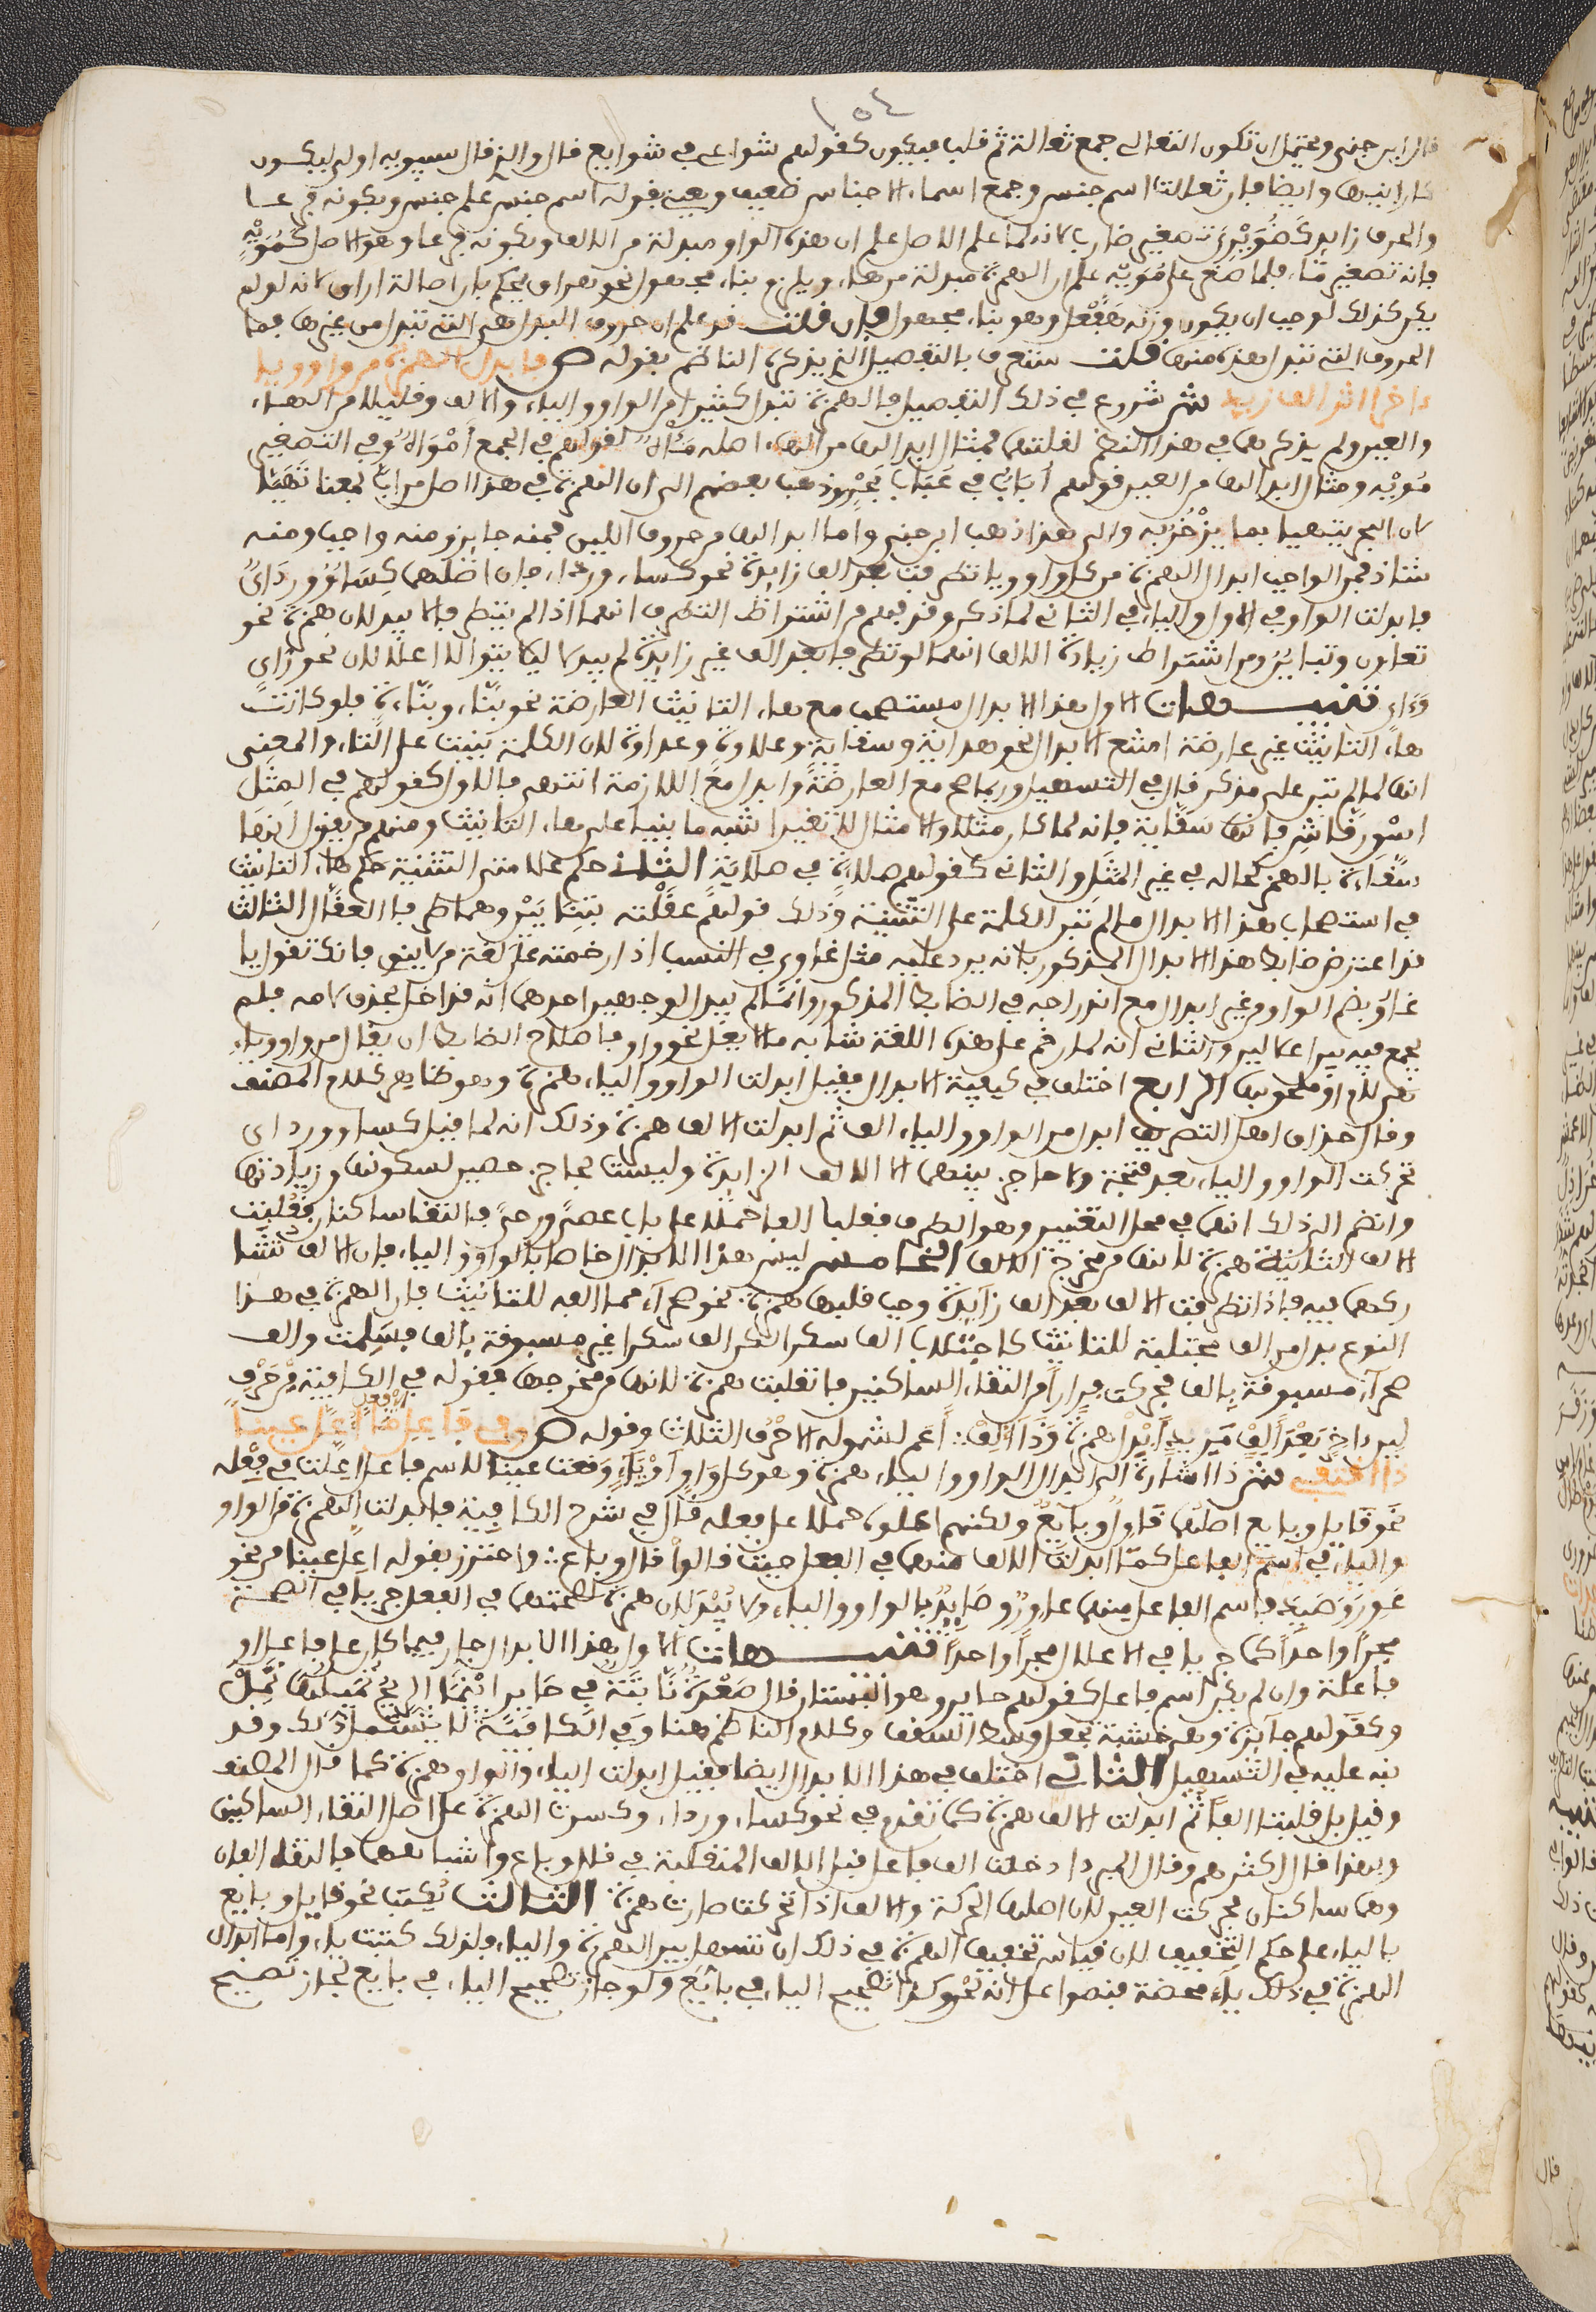 ١٥٤
قال ابن جني ويحتمل ان تكون الثعالي جمع ثعالة ثم قلب فيكون كقولهم شواعي في شوايع قال والذي قال سيبويه اولى ليكون
كارانبها وايضا فان ثعالة اسم جنس وجمع اسماء الاجناس ضعيف ويعني بقوله اسم جنس علم جنس وبكونه فرعا
والحرف زايد كضويرب تصغير ضارب لانه لما علم الاصل علم ان هذه الواو مبدلة من الالف وبكونه فرعا وهو الاصل كمويه
فانه تصغير ماء فلما صغر على مويه علم ان الهمزة مبدلة من هاء ويلزم بناء مجهول نحو هراق يحكم بان اصالة اراق لانه لو لم
يكن كذلك لوجب ان يكون وزنه هفعل وهو بناء مجهول فان قلت قد علم ان حروف البدل هي التي تبدل من غيرها فما
الحروف التي تبدل هذه منها قلت ستعرف بالتفصيل الذي يذكره الناظم بقوله ص فابدل الهمزة من واو ويا
ءاخرا اثر الف زيد ش شروع في ذلك التفصيل فالهمزة تبدل كثيرا من الواو والياء والالف وقليلا من الهاء
والعين ولم يذكرهما في هذا النظم لقلتهما فمثال ابدالها من الهاء ماء اصله ماه لقولهم في الجمع امواه وفي التصغير
مويه ومثال ابدالها من العين قولهم اباب في عباب بحر وذهب بعضهم الى ان الهمزة في هذا اصل من اب بمعنا تهيا
لان البحر يتهيا بما يزخر به والى هذا ذهب ابن جني واما ابدالها من حروف اللين فمنه جايز ومنه واجب ومنه
شاذ فمن الواجب ابدال الهمزة من كل واو ويا تطرفت بعد الف زايدة نحو كساء ورداء فان اصلهما كساو ورداي
فابدلت الواو في الاول والياء في الثاني لما ذكر وقد فهم من اشتراط التطرف انهما اذا لم يتطرفا لا يبدلان همزة نحو
تعاون وتباين ومن اشتراط زيادة الالف انهما لو تطرفا بعد الف غير زايدة لم يبدلا ليلا يتوالا اعلالان نحو زاي
وءاء تنبيهات الاول هذا الابدال مستصحب مع هاء التانيث العارضة نحو بناء وبناءة فلو كانت
هاء التانيث غير عارضة امتنع الابدال نحو هداية وسقاية وعلاوة وعداوة لان الكلمة بنيت على التاء والمعنى
انها لما لم تبن على مذكر قال في التسهيل وربما صح مع العارضة وابدل مع اللازمة انتهى فالاول كقولهم في المثل
اسق رقاش فانها سقاية فانه لما كان مثلا والامثال لا تغير اشبه ما بنيى على هاء التانيث ومنهم من يقول انها
سقاءة بالهمز كحاله في غير المثل والثاني كقولهم صلاءة في صلاية الثاني حكم علامتي التثنية حكم هاء التانيث
في استصحاب هذا الابدال ما لم تبن الكلمة على التثنية وذلك قولهم عقلته بثنايين وهما طرفا العقال الثالث
قد اعترض ضابط هذا الابدال المذكور بانه يرد عليه مثل غاوي في النسب اذا رخمته على لغة من لا ينوي فانك تقول يا
غاو بضم الواو من غير ابدال مع اندراجه في الضابط المذكور وانما لم يبدل لوجهين احدهما انه قد اعل بحذف لامه فلم
يجمع فيه بين اعلالين والثاني انه لما رخم على هذه اللغة شابه ما لا يعل نحو واو فاصلاح الضابط ان يقال من واو وياء
هي لام او ملحق بها الرابع اختلف في كيفية الابدال فقيل ابدلت الواو والياء همزة وهو ظاهر كلام المصنف
وقال حذاق اهل التصريف ابدل من الواو والياء الف ثم ابدلت الالف همزة وذلك انه لما قيل كساو ورداي
تحركت الواو والياء بعد فتحة ولا حاجز بينهما الا الالف الزايدة وليست بحاجز حصين لسكونها وزيادتها
وانضم الى ذلك انهما في محل التغيير وهو الطرف فقلبا الفا حملا على باب عصى ورحى فالتقا ساكنان فقلبت
الالف الثانية همزة لانها من مخرج الالف الخامس ليس هذا الابدال خاصا بالواو والياء فان الالف تشا
ركهما فيه فاذا تطرفت الالف بعد الف زايدة وجب قلبها همزة نحو صحراء مما الفه للتانيث فان الهمزة في هذا
النوع بدل من الف مجتلبة للتانيث كاجتلاب الف سكرى لاكن الف سكرا غير مسبوقة بالف فسلمت والف
صحراء مسبوقة بالف فحركت فرارا من التقاء الساكنين فانقلبت همزة لانها من مخرجها فقوله في الكافية من حرف
لين ءاخر بعد الف مزيد ابدل همزة وذا الف اعم لشموله الاحرف الثلاث وقوله ص وفي فاعل ما اعل عينا
ذا اقتفي ش ذا اشارة الى ابدال الواو والياء همزة وهو كل واو او ياء وقعت عينا لاسم فاعل اعلت في فعله
نحو قايل وبايع اصلهما قاول وبايع ولكنهم اعلوه حملا على فعله قال في شرح الكافية فابدلت الهمزة من الواو
والياء في اسم الفاعل كما ابدلت الالف منهما في الفعل حيث قالوا قال وباع واحترز بقوله اعل عينا من نحو
عور وصيد فاسم الفاعل منهما عاور وصايد بالواو والياء ولا يبدلان همزة لصحتهما في الفعل جريا في الصحة
مجرا واحدا كما جريا في الاعلال مجرا واحدا تنبيهات الاول هذا الابدال جار فيما كان على فاعل او
فاعلة وان لم يكن اسم فاعل كقولهم حاير وهو البستان قال صعدة نابتة في حاير اينما الريح تميلها تمل
وكقولهم جايزة وهي خشبة تجعل وسط السقف وكلام الناظم هنا وفي الكافية لا يشمل ذلك وقد
نبه عليه في التسهيل الثاني اختلف في هذا الابدال ايضا فقيل ابدلت الياء والواو همزة كما قال المصنف
وقيل بل قلبتا الفا ثم ابدلت الالف همزة كما تقدم في نحو كساء ورداء وكسرت الهمزة على اصل التقاء الساكنين
وبهذا قال اكثرهم وقال المبرد ادخلت الف فاعل قبل الالف المنقلبة في قال وباع واشباههما فالتقا الفان
وهما ساكنان فحركت العين لان اصلها الحركة والالف اذا تحركت صارت همزة الثالث يكتب نحو قايل وبايع
بالياء على حكم التخفيف لان قياس تخفيف الهمزة في ذلك ان تسهل بين الهمزة والياء فلذلك كتبت ياء واما ابدال
الهمزة في ذلك ياء محضة فنصوا على انه لحن وكذا تصحيح الياء في بائع ولو جاز تصحيح الياء في بايع لجاز تصحيح